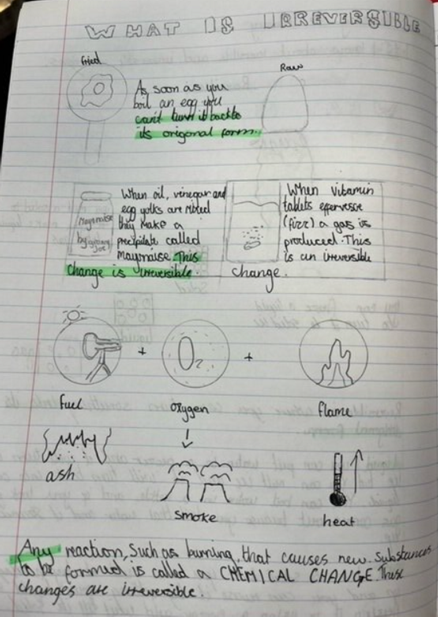 WHAT IS IRREVERSIBLE
fried
Raw
As soon as you
boil an egg you
can't turn it back to
its origonal form.
When oil, vinegar and
egg yolks are mixed
they make a
precipitate called
Mayonaise. This
change is irreversible.
Mayonaise
When vitamin
tablets effervesce
(fizz) a gas is
produced. This
is an irreversible
change.
+
O2
+
fuel
oxygen
flame
ash
smoke
heat
Any reaction, such as burning, that causes new substances
to be formed is called a CHEMICAL CHANGE. These
changes are irreversible.